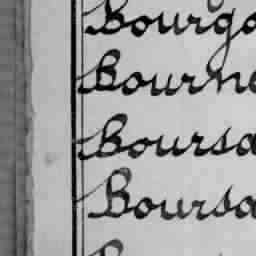 Bourgo
Bourne
Boursa
Boursa